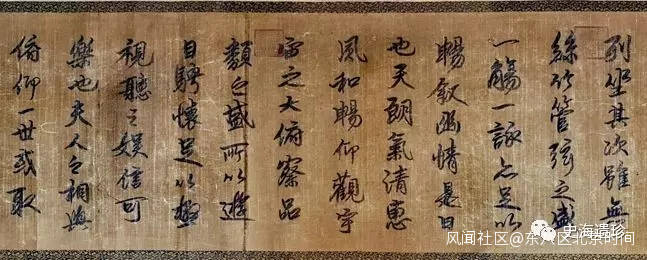 列坐其次雖無
絲竹管弦之盛
一觴一詠亦足以
暢敘幽情是日
也天朗氣清惠
風和暢仰觀宇
宙之大俯察品
類之盛所以遊
目騁懷足以極
視聽之娛信可
樂也夫人之相與
俯仰一世或取
史海遗珍
风闻社区@东八区北京时间